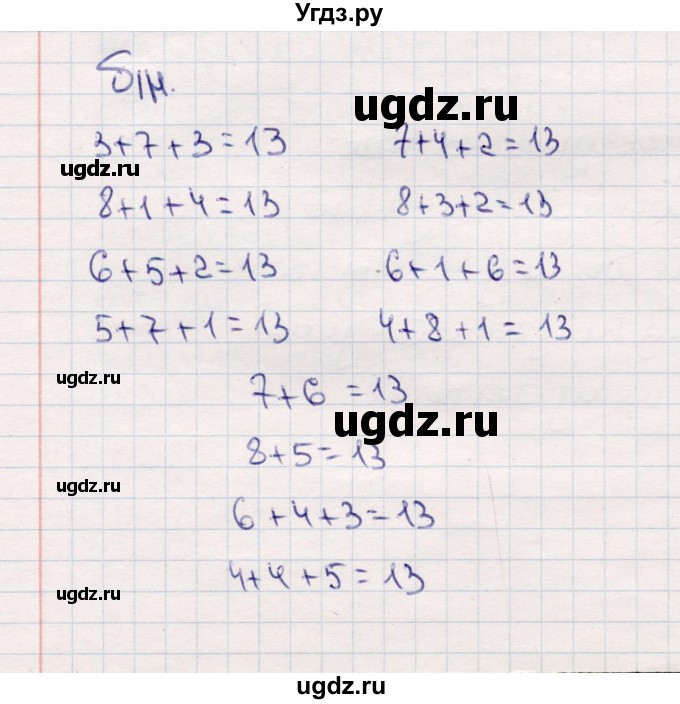 Угдз.ру
3+7+3=13 7+4+2=13
8+1+4=13 8+3+2=13
6+5+2=13 6+1+6=13
5+7+1=13 4+8+1=13
7+6=13
8+5=13
6+4+3=13
4+4+5=13
ugdz.ru
ugdz.ru
ugdz.ru
ugdz.ru
ugdz.ru
ugdz.ru
ugdz.ru